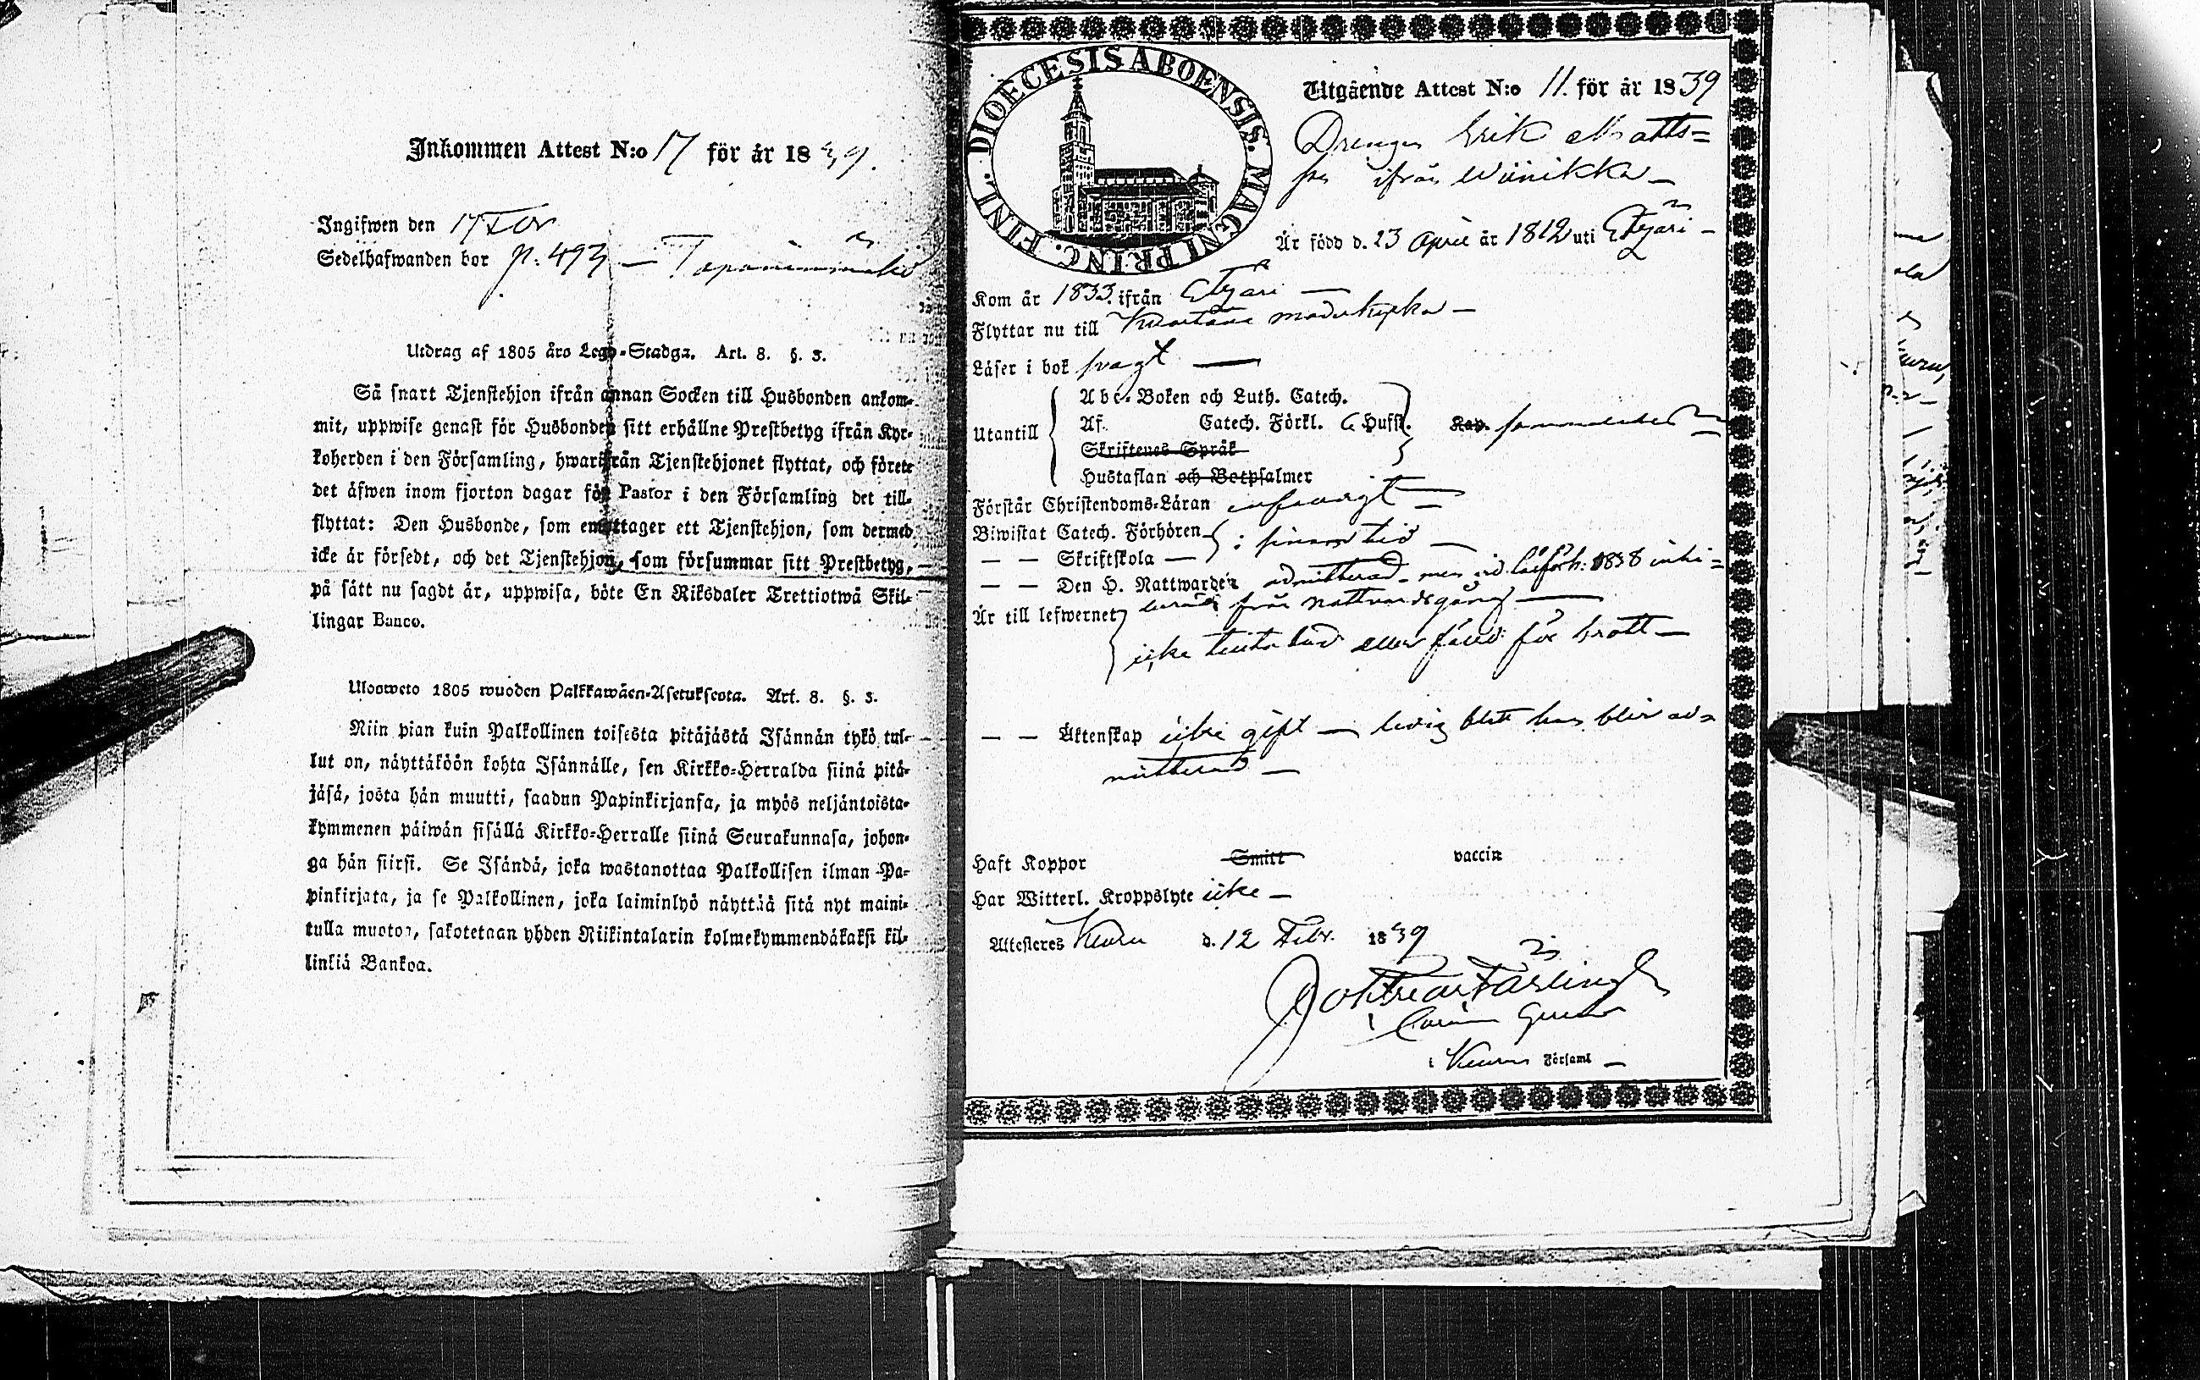 Inkommen Attest N:o 17 för år 1839.
Ingifwen den 17
Sedelhafwanden bor p. 493 —
Utdrag af 1805 års Lego-Stadga. Art. 8. §. 3.
Så snart Tjenstehjon ifrån annan Socken till Husbonden ankom-
mit, uppwise genast för Husbonden sitt erhållne Prestbetyg ifrån Kyr-
koherden i den Församling, hwarifrån Tjenstehjonet flyttat, och förete
det äfwen inom fjorton dagar för Pastor i den Församling det till-
flyttat: Den Husbonde, som emottager ett Tjenstehjon, som dermed
icke är försedt, och det Tjenstehjon, som försummar sitt Prestbetyg,
på sätt nu sagdt är, uppwisa, böte En Riksdaler Trettiotwå Skil-
lingar Banco.
Ulosweto 1805 wuoden Palkkawäen-Asetuksesta. Art. 8. §. 3.
Niin pian kuin Palkollinen toisesta pitäjästä Isännän tykö tul-
lut on, näyttäköön kohta Isännälle, sen Kirkko-Herralda siinä pitä-
jäsä, josta hän muutti, saadun Papinkirjansa, ja myös neljäntoista-
kymmenen päiwän sisällä Kirkko-Herralle siinä Seurakunnasa, johon-
ga hän siirsi. Se Isändä, joka wastanottaa Palkollisen ilman Pa-
pinkirjata, ja se Palkollinen, joka laiminlyö näyttää sitä nyt maini-
tulla muoton, sakotetaan yhden Riikintalarin kolmekymmendäkaksi kil-
linkiä Bankoa.
DIOECESIS ABOENSIS. MAGNI PRINC. FINL.
Utgående Attest N:o 11. för år 1839
Drengen Erik Matts=
son ifrån Wiinikka —
Är född d. 23 April år 1812 uti Etzäri —
Kom år 1833. ifrån Etzäri —
Flyttar nu till Kuortane moderkyrka —
Läser i bok svagt —
Utantill
Abc-Boken och Luth. Catech.
Af Catech. Förkl. 6 Hufst. Kap.
Skriftenes Språk
Hustaflan och Botpsalmer
Förstår Christendoms-Läran
Biwistat Catech. Förhören
— — Skriftskola — i sinom tid —
— — Den H. Nattwarden admitterad — men vid läsförh: 1838 inhi=
Är till lefwernet berad från nattvardsgång —
icke tilltalad eller fälld för brott —
— — Äktenskap icke gift — ledig blott han blir ad=
mitterad —
Haft Koppor Smitt vaccin
Har Witterl. Kroppslyte icke —
Attesteres Keuru d. 12 Febr. 1839
i Keuru Församl —